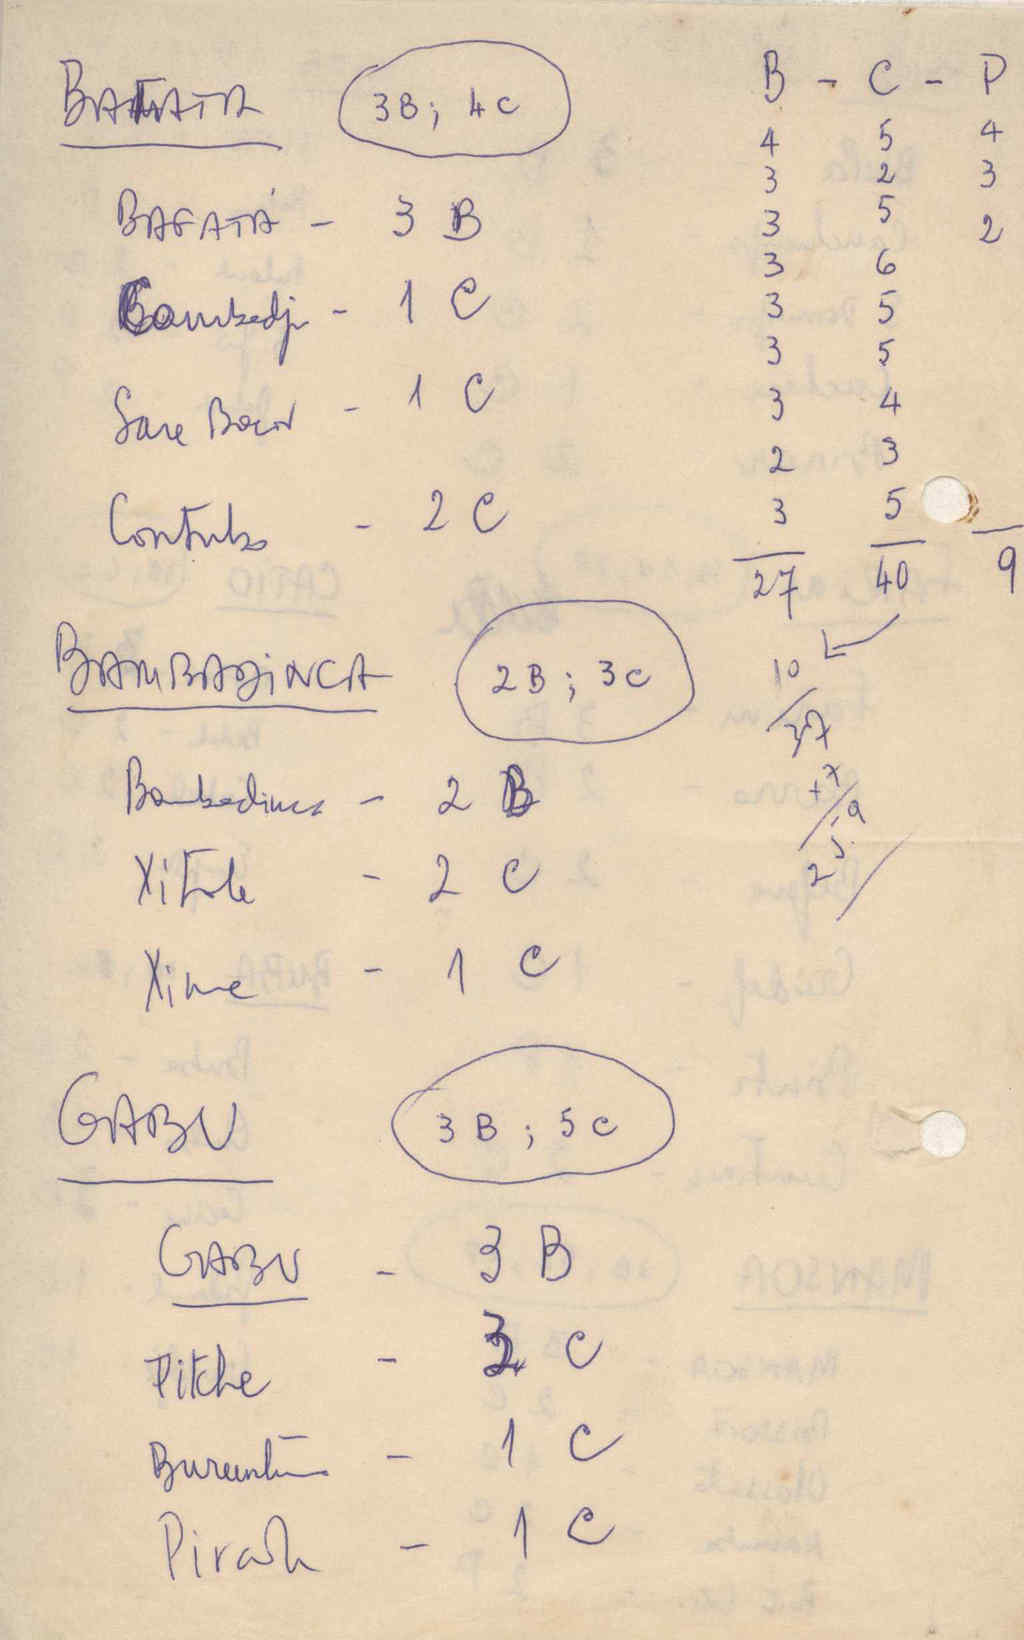 BAFATA 3B; 4C
BAFATÁ - 3 B
Cambadju - 1 C
Sare Bacar - 1 C
Contubo - 2 C
BAMBADINCA 2B; 3C
Bambadinca - 2 B
Xitole - 2 C
Xime - 1 C
GABU 3B; 5C
GABU - 3 B
Pitche - 3 C
Buruntu - 1 C
Pirada - 1 C
B - C - P
4 5 4
3 2 3
3 5 2
3 6
3 5
3 5
3 4
2 3
3 5
27 40 9
10
37
+7